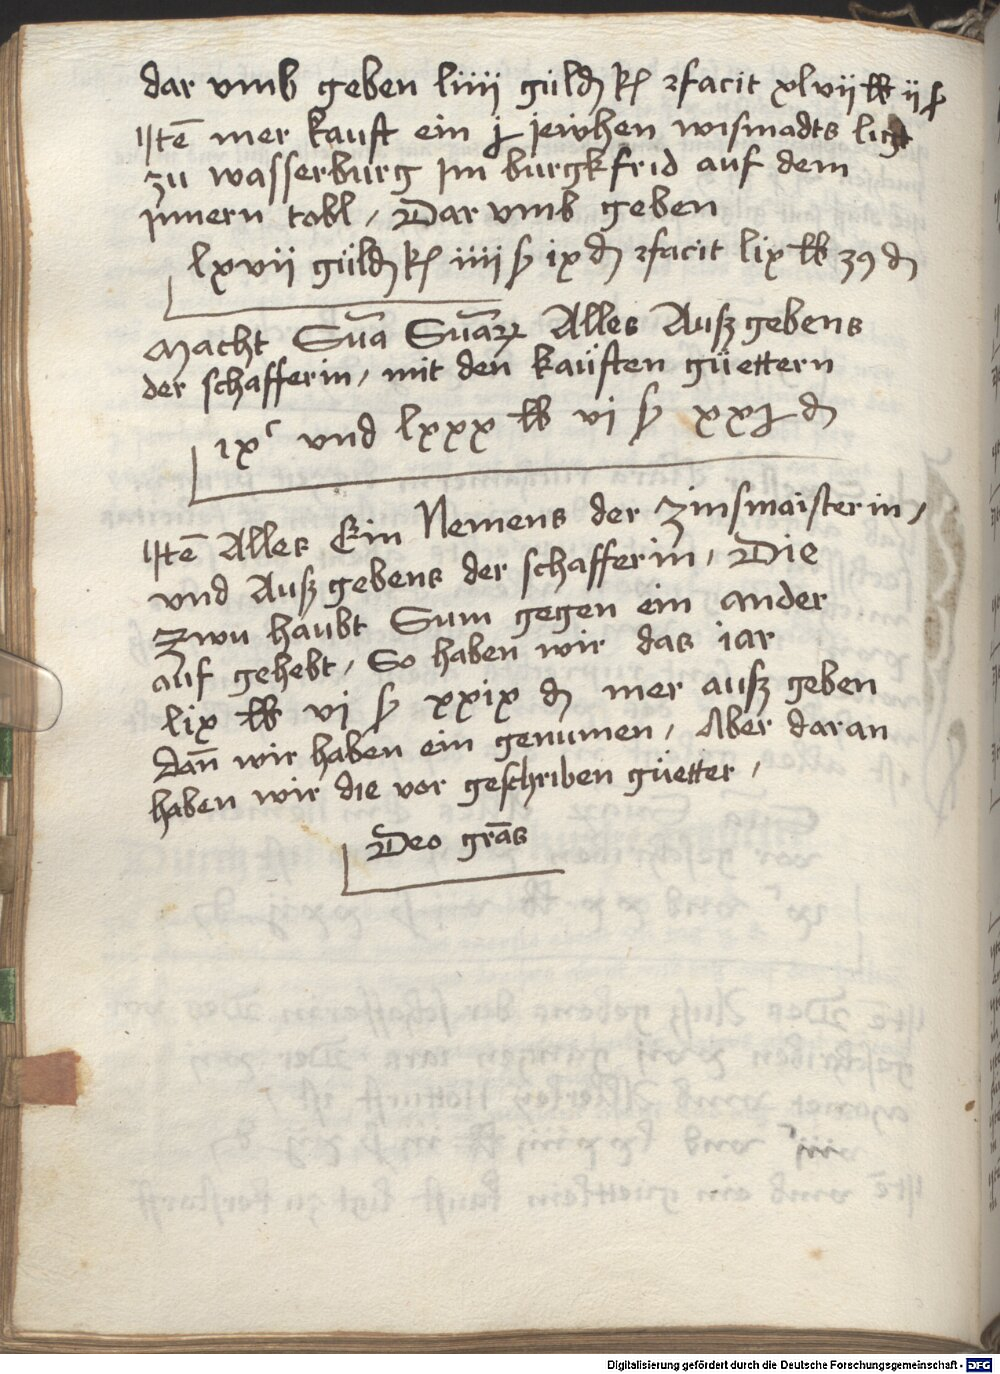 dar vmb geben liiii guldn̄ rh̄ facit xlvii lb ii ß
Itē mer kauft ein j jewhen wismadts ligt
zu wasserburg Im burgkfrid auf dem
Innern tobl / Dar vmb geben
lxvii guldn̄ rh̄ iiii ß ix dn̄ facit lix lb 39 dn̄
Macht Sūa Sūaꝝ Alles Außgebens
der schafferin / mit den kaüften güettern
ixᶜ vnd lxxx lb vi ß xxj dn̄
Itē Alles Ein Nemens der Zinsmaisterin /
vnd Außgebens der schafferin / Die
Zwu haubt Sum gegen ein ander
auf gehebt / So haben wir das iar
lix lb vi ß xxix dn̄ mer außgeben
dañ wir haben ein genumen / Aber daran
haben wir die vor geschriben güetter /
Deo grās
Digitalisierung gefördert durch die Deutsche Forschungsgemeinschaft - DFG